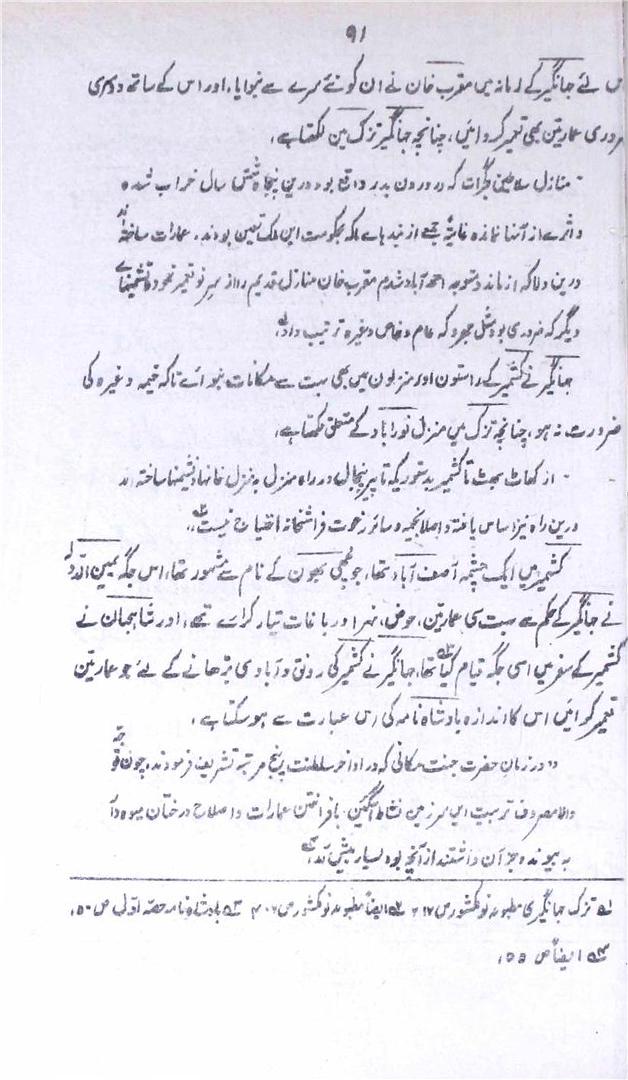 ۹۱
اس لئے جہانگیر کے زمانہ میں مقرب خان نے ان کو نئے سرے سے بنوایا، اور اس کے ساتھ دوسری
ضروری عمارتین بھی تعمیر کروائیں، چنانچہ جہانگیر تزک مین لکھتا ہے،
منازل سلاطین گجرات کہ در درون بدر واقع بود درین پنجاہ شش سال خراب شدہ
و اثرے از آنہا نماندہ غایۃً جمعے از بندہاے ما کہ بحکومت این ملک تعین بودند، عمارات ساختہ اند
درین ولا کہ از ماندو متوجہ احمد آباد شدم مقرب خان منازل قدیم را از سر نو تعمیر نمود و نشیمنہاے
دیگر کہ ضروری بود مثل جھروکہ عام و خاص وغیرہ ترتیب داد،
جہانگیر نے کشمیر کے راستون اور منزلون میں بھی بہت سے مکانات بنوائے تاکہ خیمہ وغیرہ کی
ضرورت نہ ہو، چنانچہ تزک میں منزل نور آباد کے متعلق لکھتا ہے،
از گھاٹ بھٹ تا کشمیر بدستوریکہ تا پیر پنجال در راہ منزل بہ منزل خانہا و نشیمنہا ساختہ اند
درین راہ نیز اساس یافتہ و اصلا بخیمہ و سائر رخوت فراشخانہ احتیاج نیست،
کشمیر میں ایک چشمہ آصف آباد تھا، جو مچھی بھون کے نام سے مشہور تھا، اس جگہ یمین الدولہ
نے جہانگیر کے حکم سے بہت سی عمارتین، حوض، نہر اور باغات تیار کرائے تھے، اور شاہجہان نے
کشمیر کے سفر میں اسی جگہ قیام کیا تھا، جہانگیر نے کشمیر کی رونق و آبادی بڑھانے کے لئے جو عمارتین
تعمیر کرائیں اس کا اندازہ بادشاہ نامہ کی اس عبارت سے ہو سکتا ہے،
در زمان حضرت جنت مکانی کہ در اواخر سلطنت پنج مرتبہ تشریف فرمودند، چون توجہ
والا مصروف تربیت این سرزمین نشاط آگین بافراختن عمارات و اصلاح درختان میوہ دار
بہ پیوند و جز آن داشتند از آنچہ بود بسیار بیش آمد،
لے تزک جہانگیری مطبوعہ نولکشور ص ۲۱۷ ۲ے ایضاً مطبوعہ نولکشور ص ۳۰۷ ۳ے بادشاہ نامہ حصہ اول ص ۵۰،
۴ے ایضاً ص ۵۵،